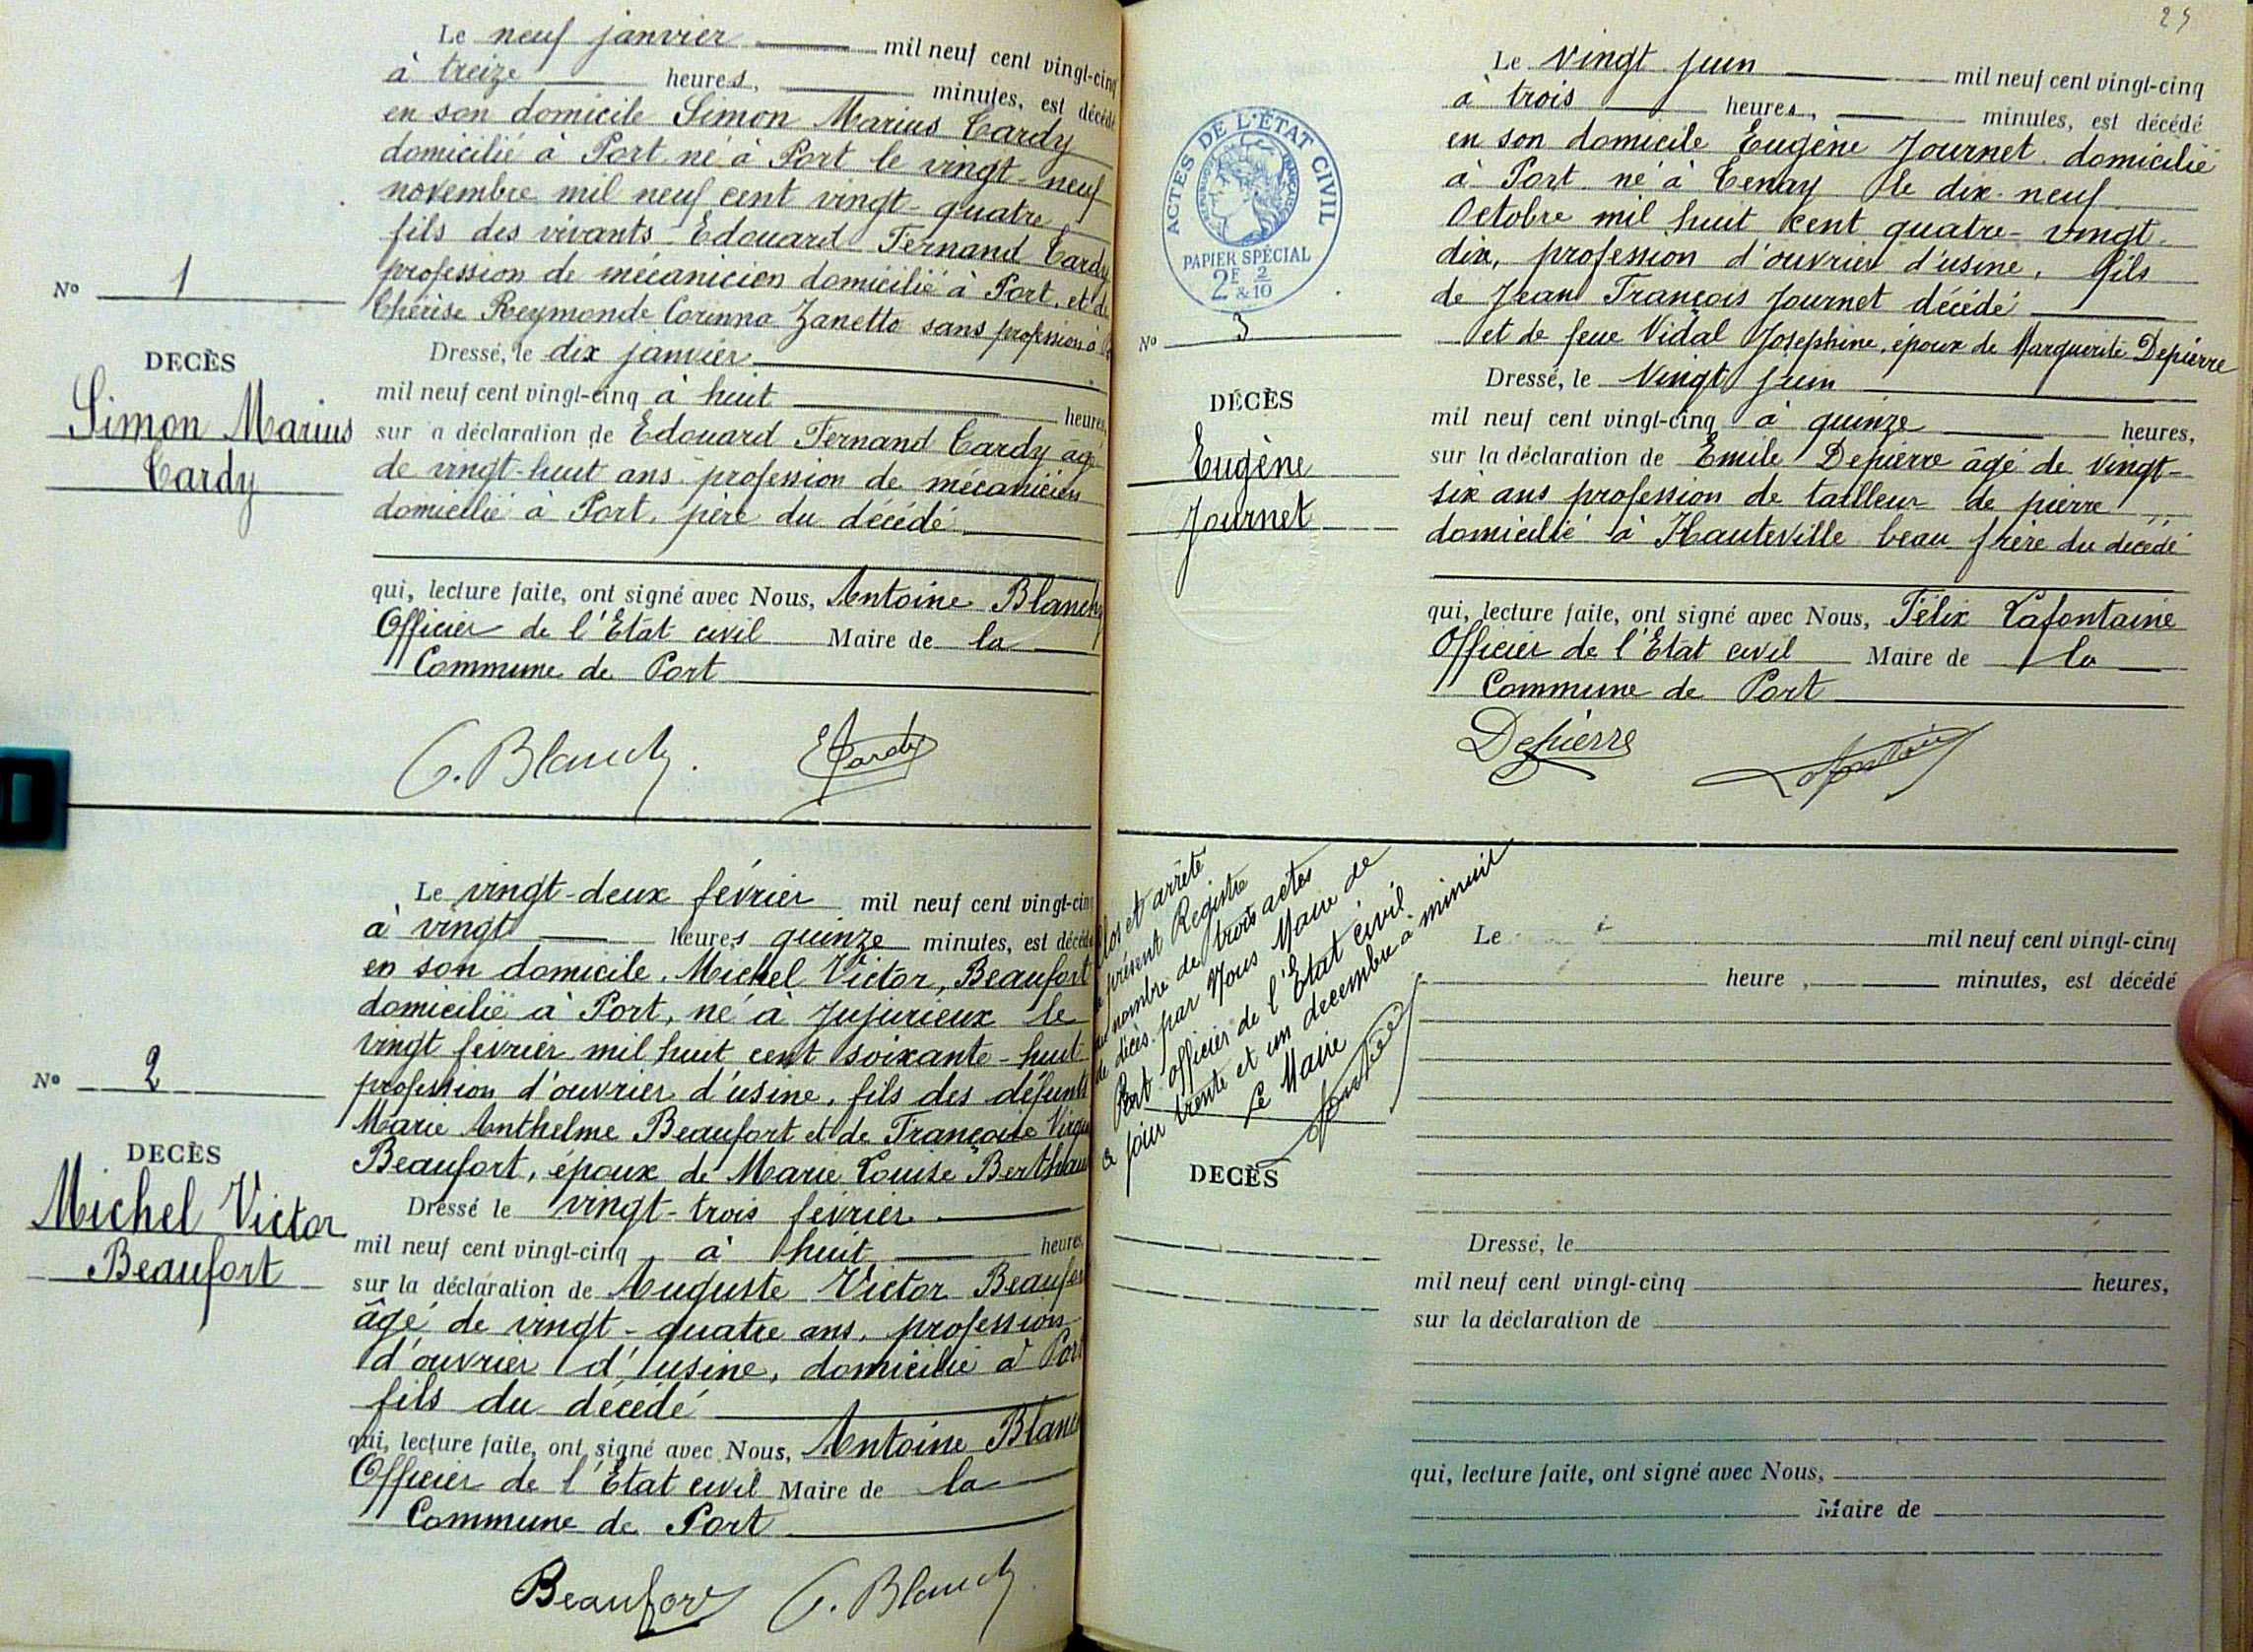 Le neuf janvier mil neuf cent vingt-cinq
à treize heures, minutes, est décédé
en son domicile Simon Marius Cardy
domicilié à Port né à Port le vingt-neuf
novembre mil neuf cent vingt-quatre
fils des vivants Edouard Fernand Cardy
profession de mécanicien domicilié à Port, et de
Thérèse Reymonde Corinna Zanetto sans profession à
No 1
DECÈS
Simon Marius
Cardy
Dressé, le dix janvier
mil neuf cent vingt-cinq à huit heures,
sur a déclaration de Edouard Fernand Cardy âgé
de vingt-huit ans profession de mécanicien
domicilié à Port, père du décédé
qui, lecture faite, ont signé avec Nous, Antoine Blanchy
Officier de l'Etat civil Maire de la
Commune de Port
Blanchy. ECardy
Le vingt-deux février mil neuf cent vingt-cinq
à vingt heures quinze minutes, est décédé
en son domicile, Michel Victor, Beaufort
domicilié à Port, né à Jujurieux le
vingt février mil huit cent soixante-huit
profession d'ouvrier d'usine, fils des défunts
Marie Anthelme Beaufort et de Françoise
Beaufort, époux de Marie Louise
No 2
DECÈS
Michel Victor
Beaufort
Dressé le vingt-trois février
mil neuf cent vingt-cinq, à huit heures,
sur la déclaration de Auguste Victor Beaufort
âgé de vingt-quatre ans, profession
d'ouvrier d'usine, domicilié à Port
fils du décédé
qui, lecture faite, ont signé avec Nous, Antoine
Officier de l'Etat civil Maire de la
Commune de Port
Beaufort Blanchy
29
Le vingt juin mil neuf cent vingt-cinq
à trois heures, minutes, est décédé
en son domicile Eugène Journet domicilié
à Port né à Tenay le dix-neuf
Octobre mil huit cent quatre-vingt-
dix, profession d'ouvrier d'usine, fils
de Jean François Journet décédé
et de feue Vidal Josephine, époux de Marguerite Depierre
ACTES DE L'ÉTAT CIVIL
RÉPUBLIQUE FRANÇAISE
PAPIER SPÉCIAL
2F & 2/10
No 3
DÉCÈS
Eugène
Journet
Dressé, le Vingt juin
mil neuf cent vingt-cinq à quinze heures,
sur la déclaration de Emile Depierre âgé de vingt-
six ans profession de tailleur de pierre
domicilié à Hauteville beau frère du décédé
qui, lecture faite, ont signé avec Nous, Félix Lafontaine
Officier de l'Etat civil Maire de la
Commune de Port
Depierre Lafontaine
Clos et arrêté
le présent Registre
au nombre de trois actes
de décès par Nous Maire de
Port officier de l'Etat civil
ce jour trente et un decembre à minuit
Le Maire
Lafontaine
DECÈS
Le mil neuf cent vingt-cinq
heure , minutes, est décédé
Dressé, le
mil neuf cent vingt-cinq heures,
sur la déclaration de
qui, lecture faite, ont signé avec Nous,
Maire de